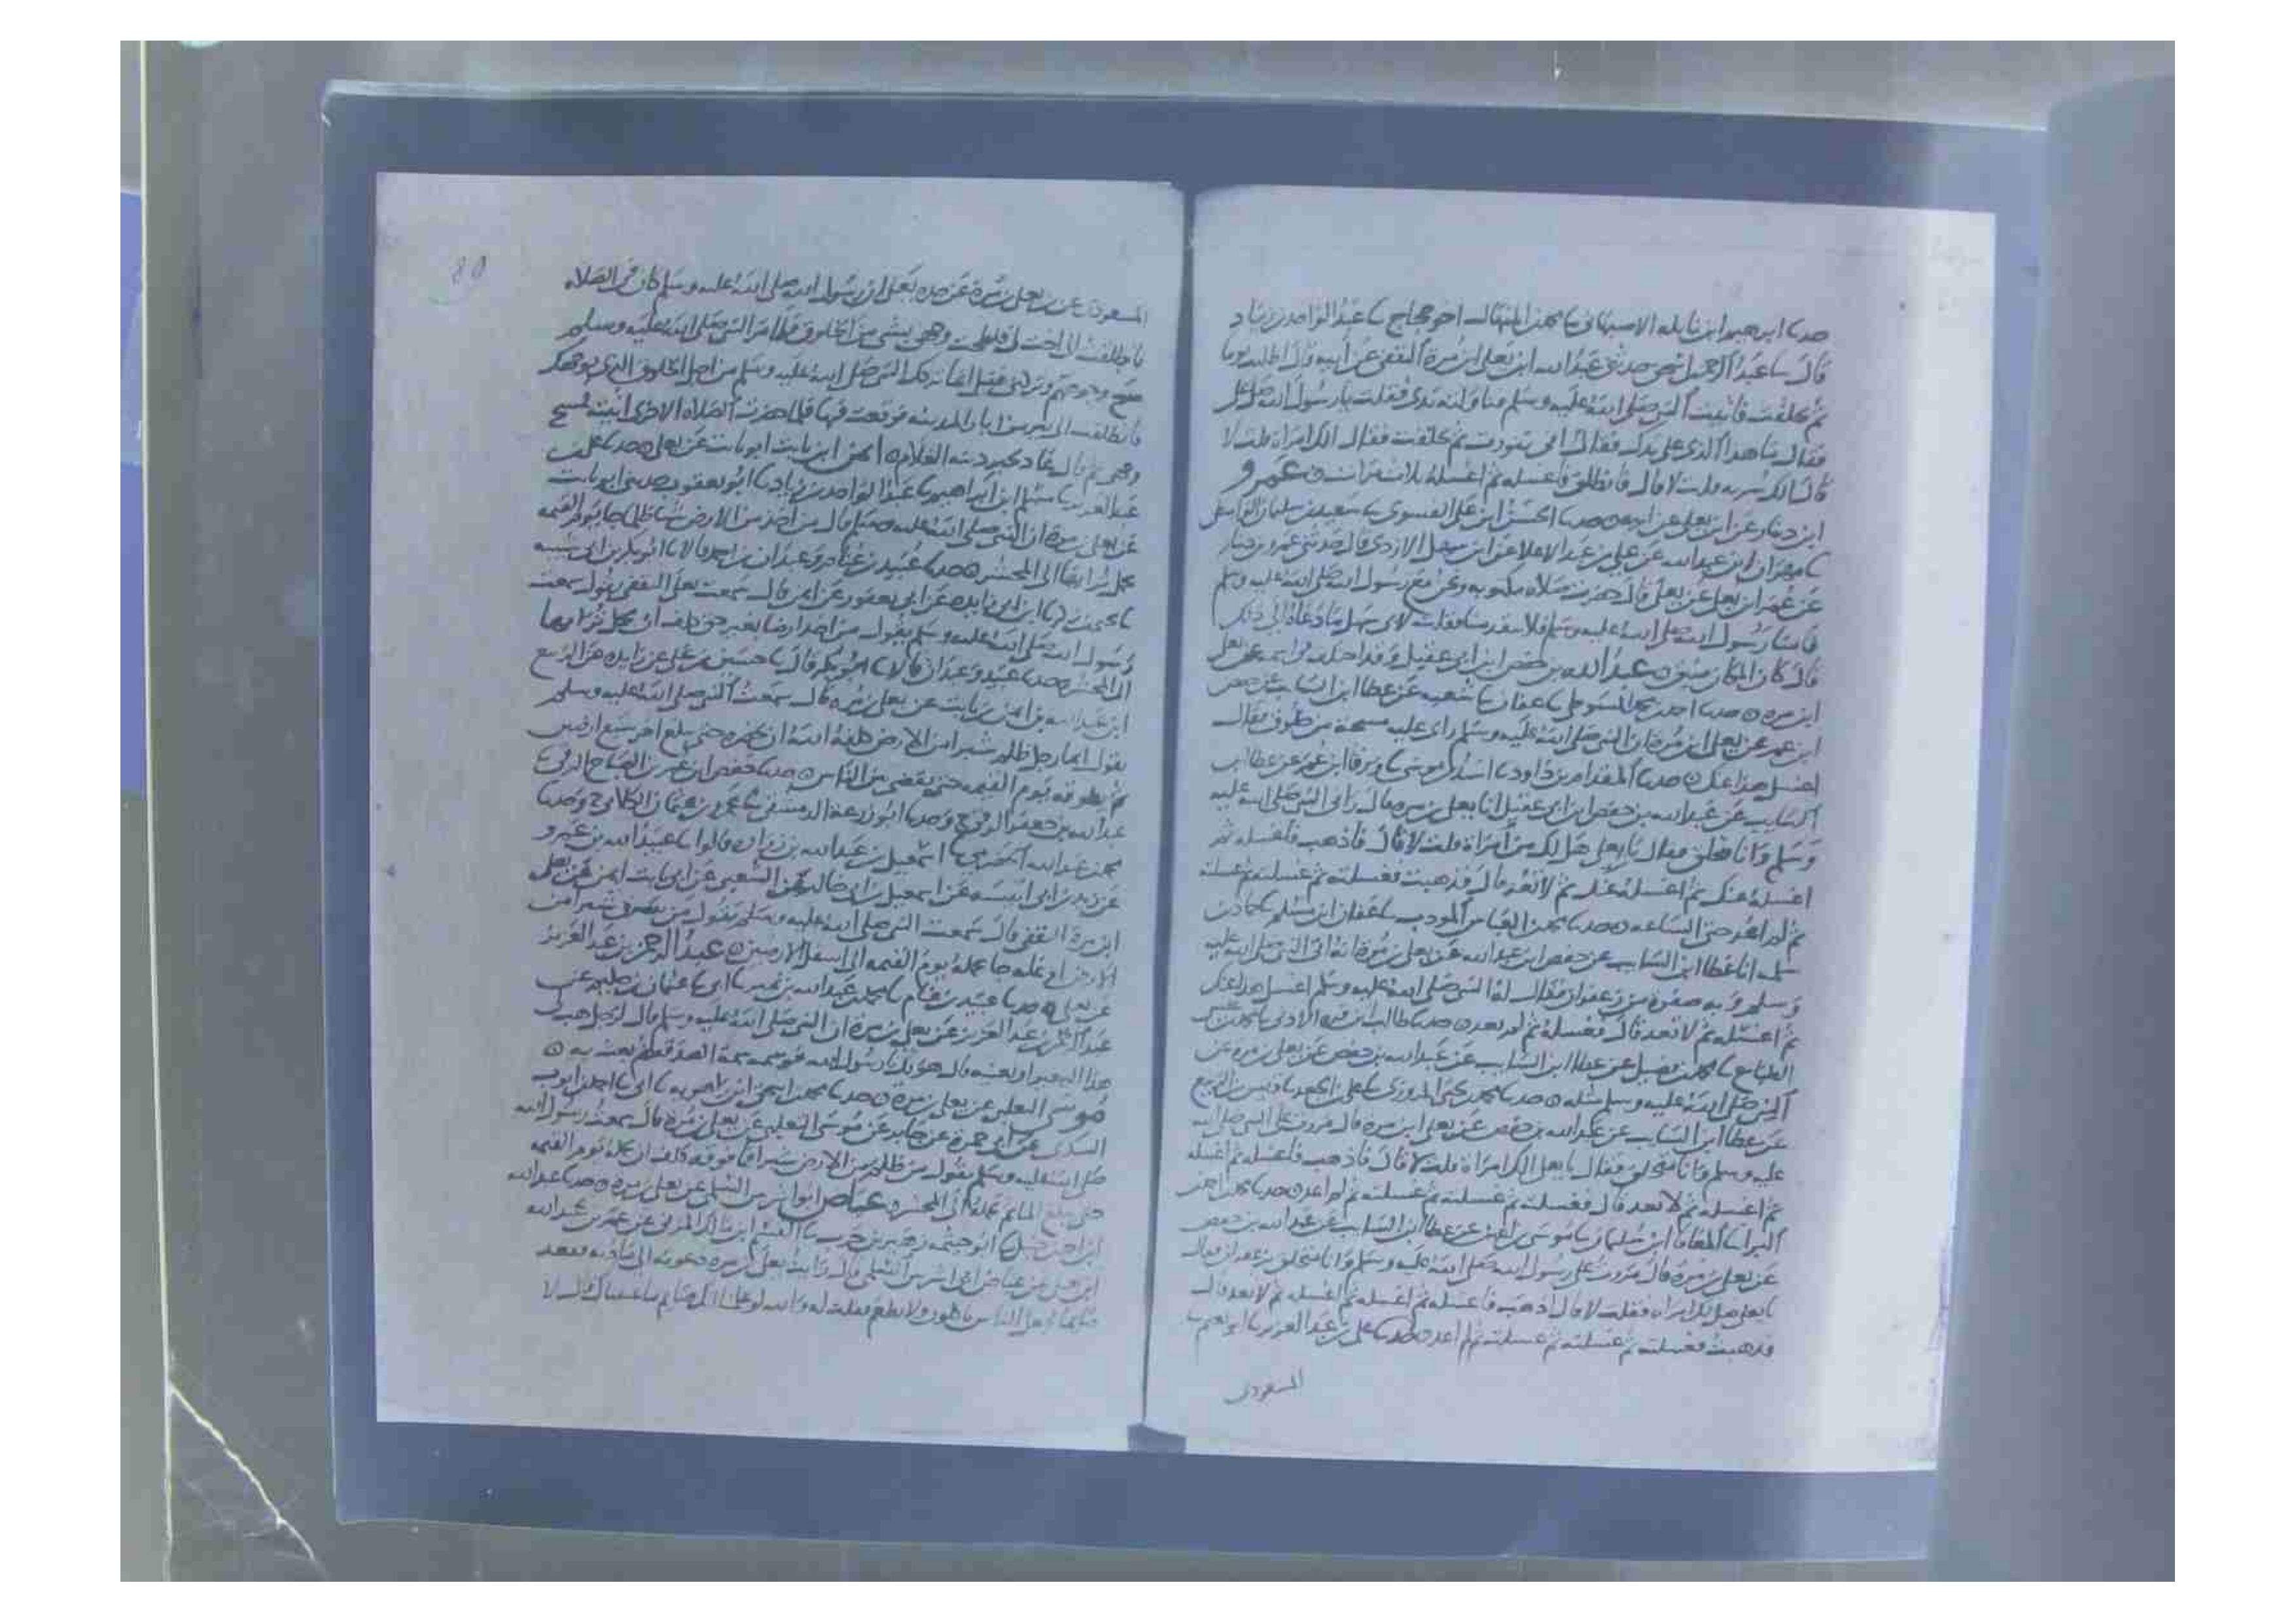 حدثنا ابراهيم ابن نايله الاصبهانى نا محمد بن المنهال اخو حجاج نا عبد الواحد بن زياد
قال نا عبد الرحمن بن اسحق حدثنى عبد الله ابن يعلى ابن مرة الثقفى عن ابيه قال اطليت يوما
ثم تخلقت فاتيت النبى صلى الله عليه وسلم فناولته يدى فقلت يا رسول الله صل على
فقال ما هذا الذى على يدك فقال انى تنورت ثم تخلقت فقال الك امراة قلت لا
قال الك سريه قلت لا قال فانطلق فاغسله ثم اغسله ثلاث مرات عمرو
ابن دينار عن ابن يعلى عن ابيه حدثنا الحسن ابن على الفسوى نا سعيد بن سليمان الواسطى
نا مهران ابن عبد الله عن على بن عبد الاعلا عن ابن سهل الازدى قال حدثنى عمرو بن دينار
عن عمر ابن يعلى عن يعلى قال حضرت صلاه مكتوبه ونحن مع رسول الله صلى الله عليه وسلم
قال كان المكان ضيق عبد الله بن حفص ابن ابى عقيل وقد اختلف فى اسمه عن يعلى
ابن مره حدثنا احمد نا عفان نا شعبه عن عطا ابن السايب عن حفص
ابن عمر عن يعلى ابن مرة ان النبى صلى الله عليه وسلم راى عليه مسحة من خلوق فقال
اغسل هذا عنك حدثنا المقدام بن داود نا اسد بن موسى نا ورقا ابن عمر عن عطا ابن
السايب عن عبد الله بن حفص ابن ابى عقيل انا يعلى بن مره قال رانى النبى صلى الله عليه
وسلم وانا مخلق فقال يا يعلى هل لك من امراة قلت لا قال فاذهب فاغسله ثم
اغسله عنك ثم اغسله عنك ثم لا تعد قال فذهبت فغسلته ثم غسلته ثم غسلته
ثم لم اعد حتى الساعه حدثنا محمد بن العباس المودب نا عفان ابن مسلم نا حماد بن
سلمه انا عطا ابن السايب عن حفص ابن عبد الله عن يعلى بن مرة انه اتى النبى صلى الله عليه
وسلم وبه صفره من زعفران فقال له النبى صلى الله عليه وسلم اغسل هذا عنك
ثم اغسله ثم لا تعد قال فغسلته ثم لم يعد حدثنا طالب ابن قره الادنى نا محمد بن عيسى
الطباع نا محمد بن فضيل عن عطا ابن السايب عن عبد الله بن حفص عن يعلى بن مرة عن
النبى صلى الله عليه وسلم مثله حدثنا محمد بن يحيى المروزى نا على بن الجعد نا قيس بن الربيع
عن عطا ابن السايب عن عبد الله بن حفص عن يعلى ابن مره قال مررت على النبى صلى الله
عليه وسلم وانا متخلق فقال يا يعلى الك امراة قلت لا قال فاذهب فاغسله ثم اغسله
ثم اغسله ثم لا تعد قال فغسلته ثم غسلته ثم غسلته ثم لم اعد حدثنا محمد بن احمد
البرا نا المعافا ابن سليمان نا موسى بن اعين عن عطا ابن السايب عن عبد الله بن حفص
عن يعلى بن مرة قال مررت على رسول الله صلى الله عليه وسلم وانا متخلق بزعفران فقال
يا يعلى هل لك امراه فقلت لا قال اذهب فاغسله ثم اغسله ثم اغسله ثم لا تعد قال
فذهبت فغسلته ثم غسلته ثم غسلته ثم لم اعد حدثنا على بن عبد العزيز نا ابو نعيم نا
المسعودى
80
المسعودى عن يعلى بن مرة عن جده يعلى ان رسول الله صلى الله عليه وسلم كان فى الصلاه
مسح وجوههم وتركنى فقيل انما تركك النبى صلى الله عليه وسلم من اجل الخلوق الذى بوجهك
فانطلقت الى بير من ابار المدينه فوقعت فيها فلما حضرت الصلاه الاخرى اتيته فمسح
وجهى ثم قال عاد بخير دينه الغلام ايمن ابن ثابت ابو ثابت عن يعلى حدثنا على بن
عبد العزيز نا مسلم ابن ابراهيم نا عبد الواحد بن زياد نا ابو يعفور حدثنى ابو ثابت
عن يعلى بن مرة ان النبى صلى الله عليه وسلم قال من اخذ من الارض شيا ظلما جا يوم القيمه
يحمل ترابها الى المحشر حدثنا عبيد بن غنام وعبدان بن احمد قالا نا ابو بكر بن ابى شيبه
رسول الله صلى الله عليه وسلم يقول من اخذ ارضا بغير حق كلف ان يحمل ترابها
الى المحشر حدثنا عبيد وعبدان قالا نا ابو بكر قال نا حسين بن على عن زايده عن الربيع
ابن عبد الله عن ايمن بن ثابت عن يعلى بن مره قال سمعت النبى صلى الله عليه وسلم
يقول ايما رجل ظلم شبرا من الارض كلفه الله ان يحفره حتى يبلغ اخر سبع ارضين
ثم يطوقه يوم القيمه حتى يقضى بين الناس حدثنا حفص ابن عمر بن الصباح الرقى نا
عبد الله بن جعفر الرقى ح وحدثنا ابو زرعه الدمشقى نا عمرو بن عثمان الكلابى ح وحدثنا
محمد بن عبد الله الحضرمى نا اسمعيل بن عبد الله بن زراره قالوا نا عبيد الله بن عمرو
عن زيد بن ابى انيسه عن اسمعيل بن ابى خالد عن الشعبى عن ابى ثابت ايمن عن يعلى
ابن مرة الثقفى قال سمعت النبى صلى الله عليه وسلم يقول من سرق شبرا من
الارض او غله جا يحمله يوم القيمه الى اسفل الارضين عبد الرحمن بن عبد العزيز
عن يعلى حدثنا عبيد بن غنام نا محمد بن عبد الله بن نمير نا ابى نا عثمان بن حكيم عن
عبد الرحمن بن عبد العزيز عن يعلى بن مرة ان النبى صلى الله عليه وسلم قال لرجل هب لى
هذا البعير او بعنيه قال هو لك يا رسول الله فوسمه سمة الصدقه ثم بعث به
السكرى عن ابى حمزة عن جابر عن موسى التغلبى عن يعلى بن مرة قال سمعت رسول الله
صلى الله عليه وسلم يقول من ظلم من الارض شبرا فما فوقه كلف ان يحمله يوم القيمه
حتى يبلغ الما ثم يحمله الى المحشر عياض ابو اشرس السلمى عن يعلى بن مره حدثنا عبد الله
ابن احمد بن حنبل نا ابو خيثمه زهير بن حرب نا القسم ابن مالك المزنى عن عمر بن عبد الله
ابن يعلى عن عياض ابى اشرس السلمى قال رايت يعلى بن مره دعوته الى مادبه فقعد
صايما فجعل الناس ياكلون ولا يطعم فقلت له والله لو علمنا انك صايم ما عنيناك قال لا